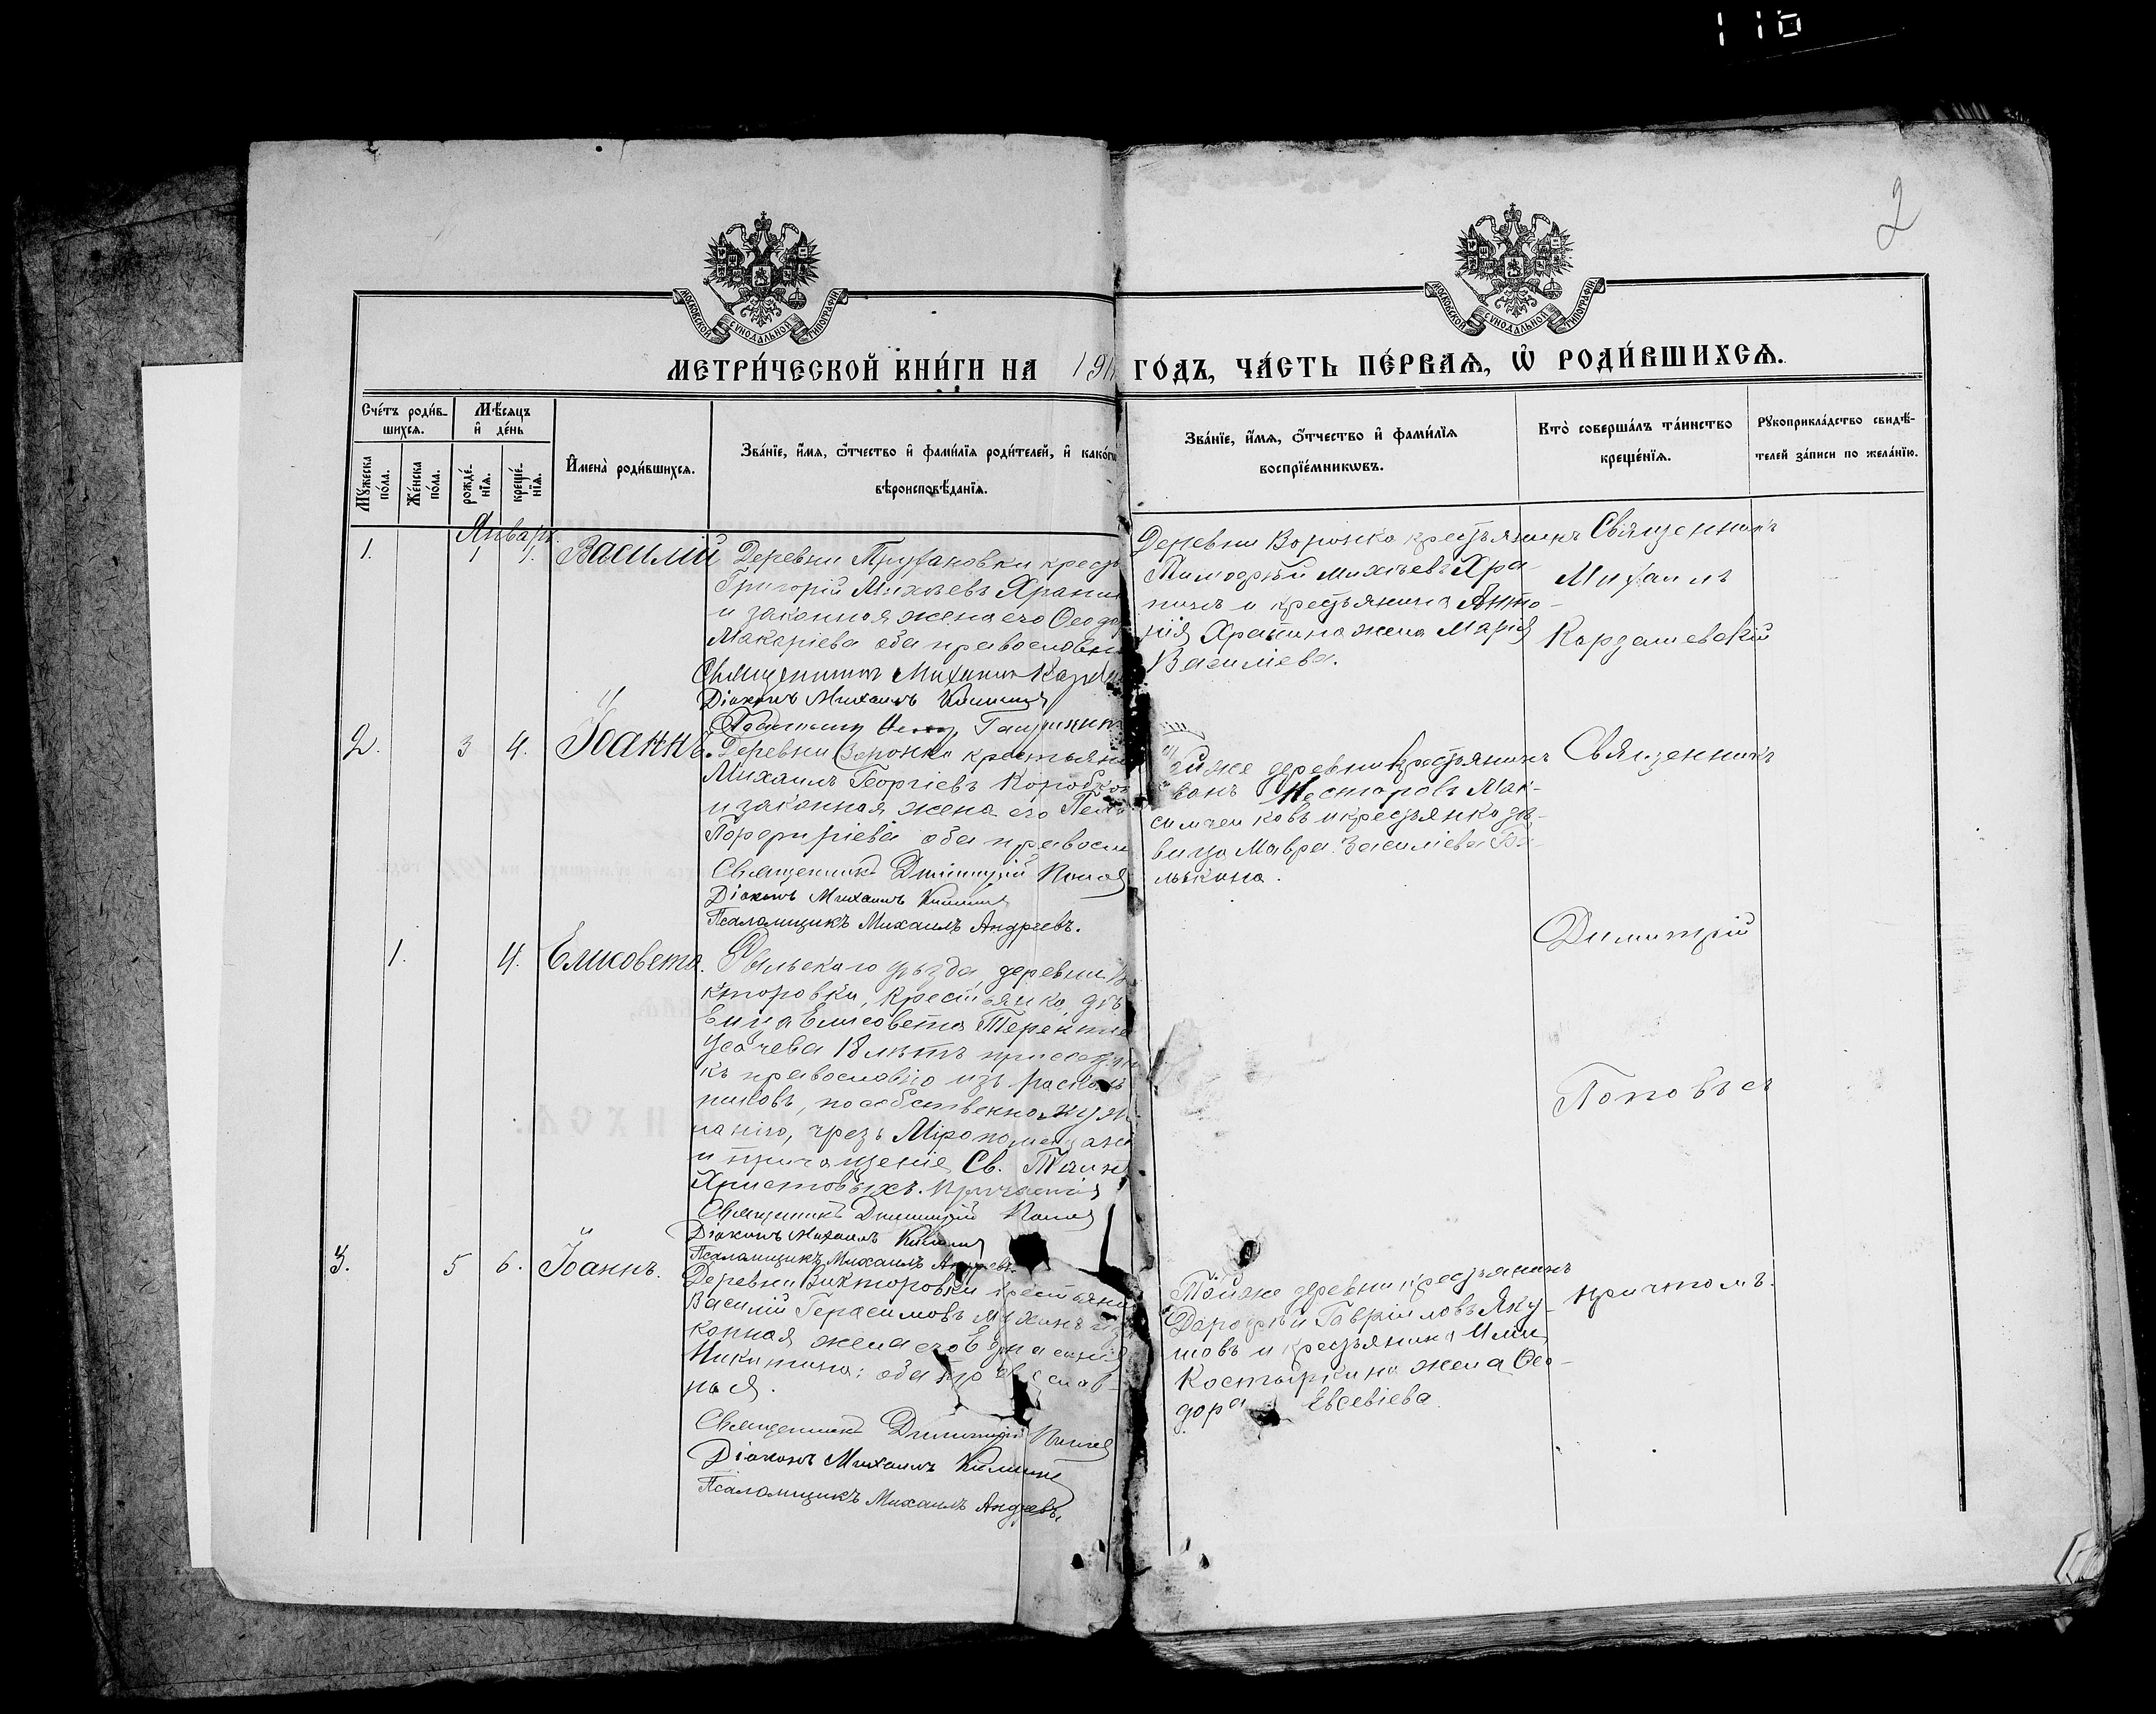 116
2
МОСКОВСКОЙ СѴНОДАЛЬНОЙ ТИПОГРАФІИ
МОСКОВСКОЙ СѴНОДАЛЬНОЙ ТИПОГРАФІИ
МЕТРИ́ЧЕСКОЙ КНИ́ГИ НА 191 ГО́ДЪ, ЧА́СТЬ ПЕ́РВАѦ, Ѡ҆ РОДИ́ВШИХСѦ.
Сче́тъ роди́в-
шихсѧ.
Мѣ́сѧцъ
и҆ де́нь
Мꙋ́жеска по́ла.
Же́нска по́ла.
рожде́-
нїѧ.
креще́-
нїѧ.
И҆мена̀ роди́вшихсѧ.
Зва́нїе, и҆́мѧ, ѻ҆́тчество и҆ фами́лїѧ роди́телей, и҆ како́гѡ
вѣроисповѣ́данїѧ.
Зва́нїе, и҆́мѧ, ѻ҆́тчество и҆ фами́лїѧ
воспрїе́мникѡвъ.
Кто̀ соверша́лъ та́инство
креще́нїѧ.
Рꙋкоприкла́дство свидѣ́-
телей за́писи по жела́нїю.
Январь.
1. 1 1. Василій
Деревни Труфановки крест
Григорій Михѣевъ Храпин
и законная жена его Ѳеодо
Макаріева оба православн
Священникъ Михаилъ Кард
Діаконъ Михаилъ
Деревни Воронка крестьянинъ
Тимоѳей Михѣевъ Хра-
пинъ и крестьянина Анто-
нія Храпина жена Марія
Василіева.
Священникъ
Михаилъ
Кардашевскій
2. 3 4. Іоаннъ.
Деревни Воронка крестьяни
Михаилъ Георгіевъ Коробков
и законная жена его Пела
Порфиріева оба правосл
Священникъ Димитрій Попов
Діаконъ Михаилъ
Псаломщикъ Михаилъ Андреевъ.
йже деревни крестьянинъ
ванъ Несторовъ Мак-
симченковъ и крестьянка дѣ-
вица Мавра Василіева Бѣ-
лькина.
Священникъ
Димитрій
Поповъ съ
причтомъ.
1. 4. Елисовета.
Рыльскаго уѣзда, деревни Ви
кторовки, крестьянка, дѣ
вица Елисовета Терентіе
Усачева 18 лѣтъ присоедин
къ православію изъ расколь
никовъ, по собственному же
ланію, чрезъ Мѵропомазані
и причащеніе Св. Таинъ
Христовыхъ.
Священникъ Димитрій Попов
Діаконъ Михаилъ
Псаломщикъ Михаилъ Андреевъ.
3. 5 6. Іоаннъ.
Деревни Викторовки крестьяни
Василій Герасимовъ и за
конная жена его
Никитина: оба православ-
ныя.
Священникъ Димитрій Попов
Діаконъ Михаилъ
Псаломщикъ Михаилъ Андреевъ.
Тойже деревни крестьянинъ
Дороѳей Гавріиловъ Яку-
шовъ и крестьянина Иліи
Костыркина жена Ѳео-
дора Евсевіева.